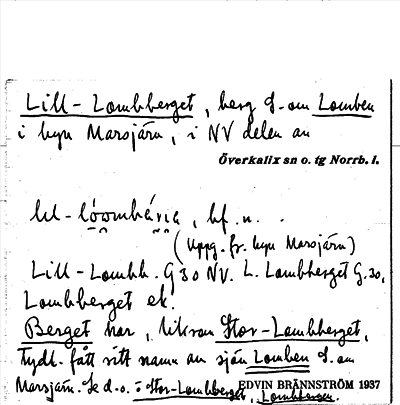 Lill-Lombberget, berg S. om Lomben
i byn Marsjärv, i NV delen av
Överkalix sn o. tg Norrb. l.
bf. n.
(Uppg. fr. byn Marsjärv)
Lill-Lombb. G 30 NV. L. Lombberget G. 30,
Lombberget ek.
Berget har, liksom Stor-Lombberget,
tydl. fått sitt namn av sjön Lomben S. om
Marsjärv. Se d.o. i Stor-Lombberget, Lombbergen.
EDVIN BRÄNNSTRÖM 1937